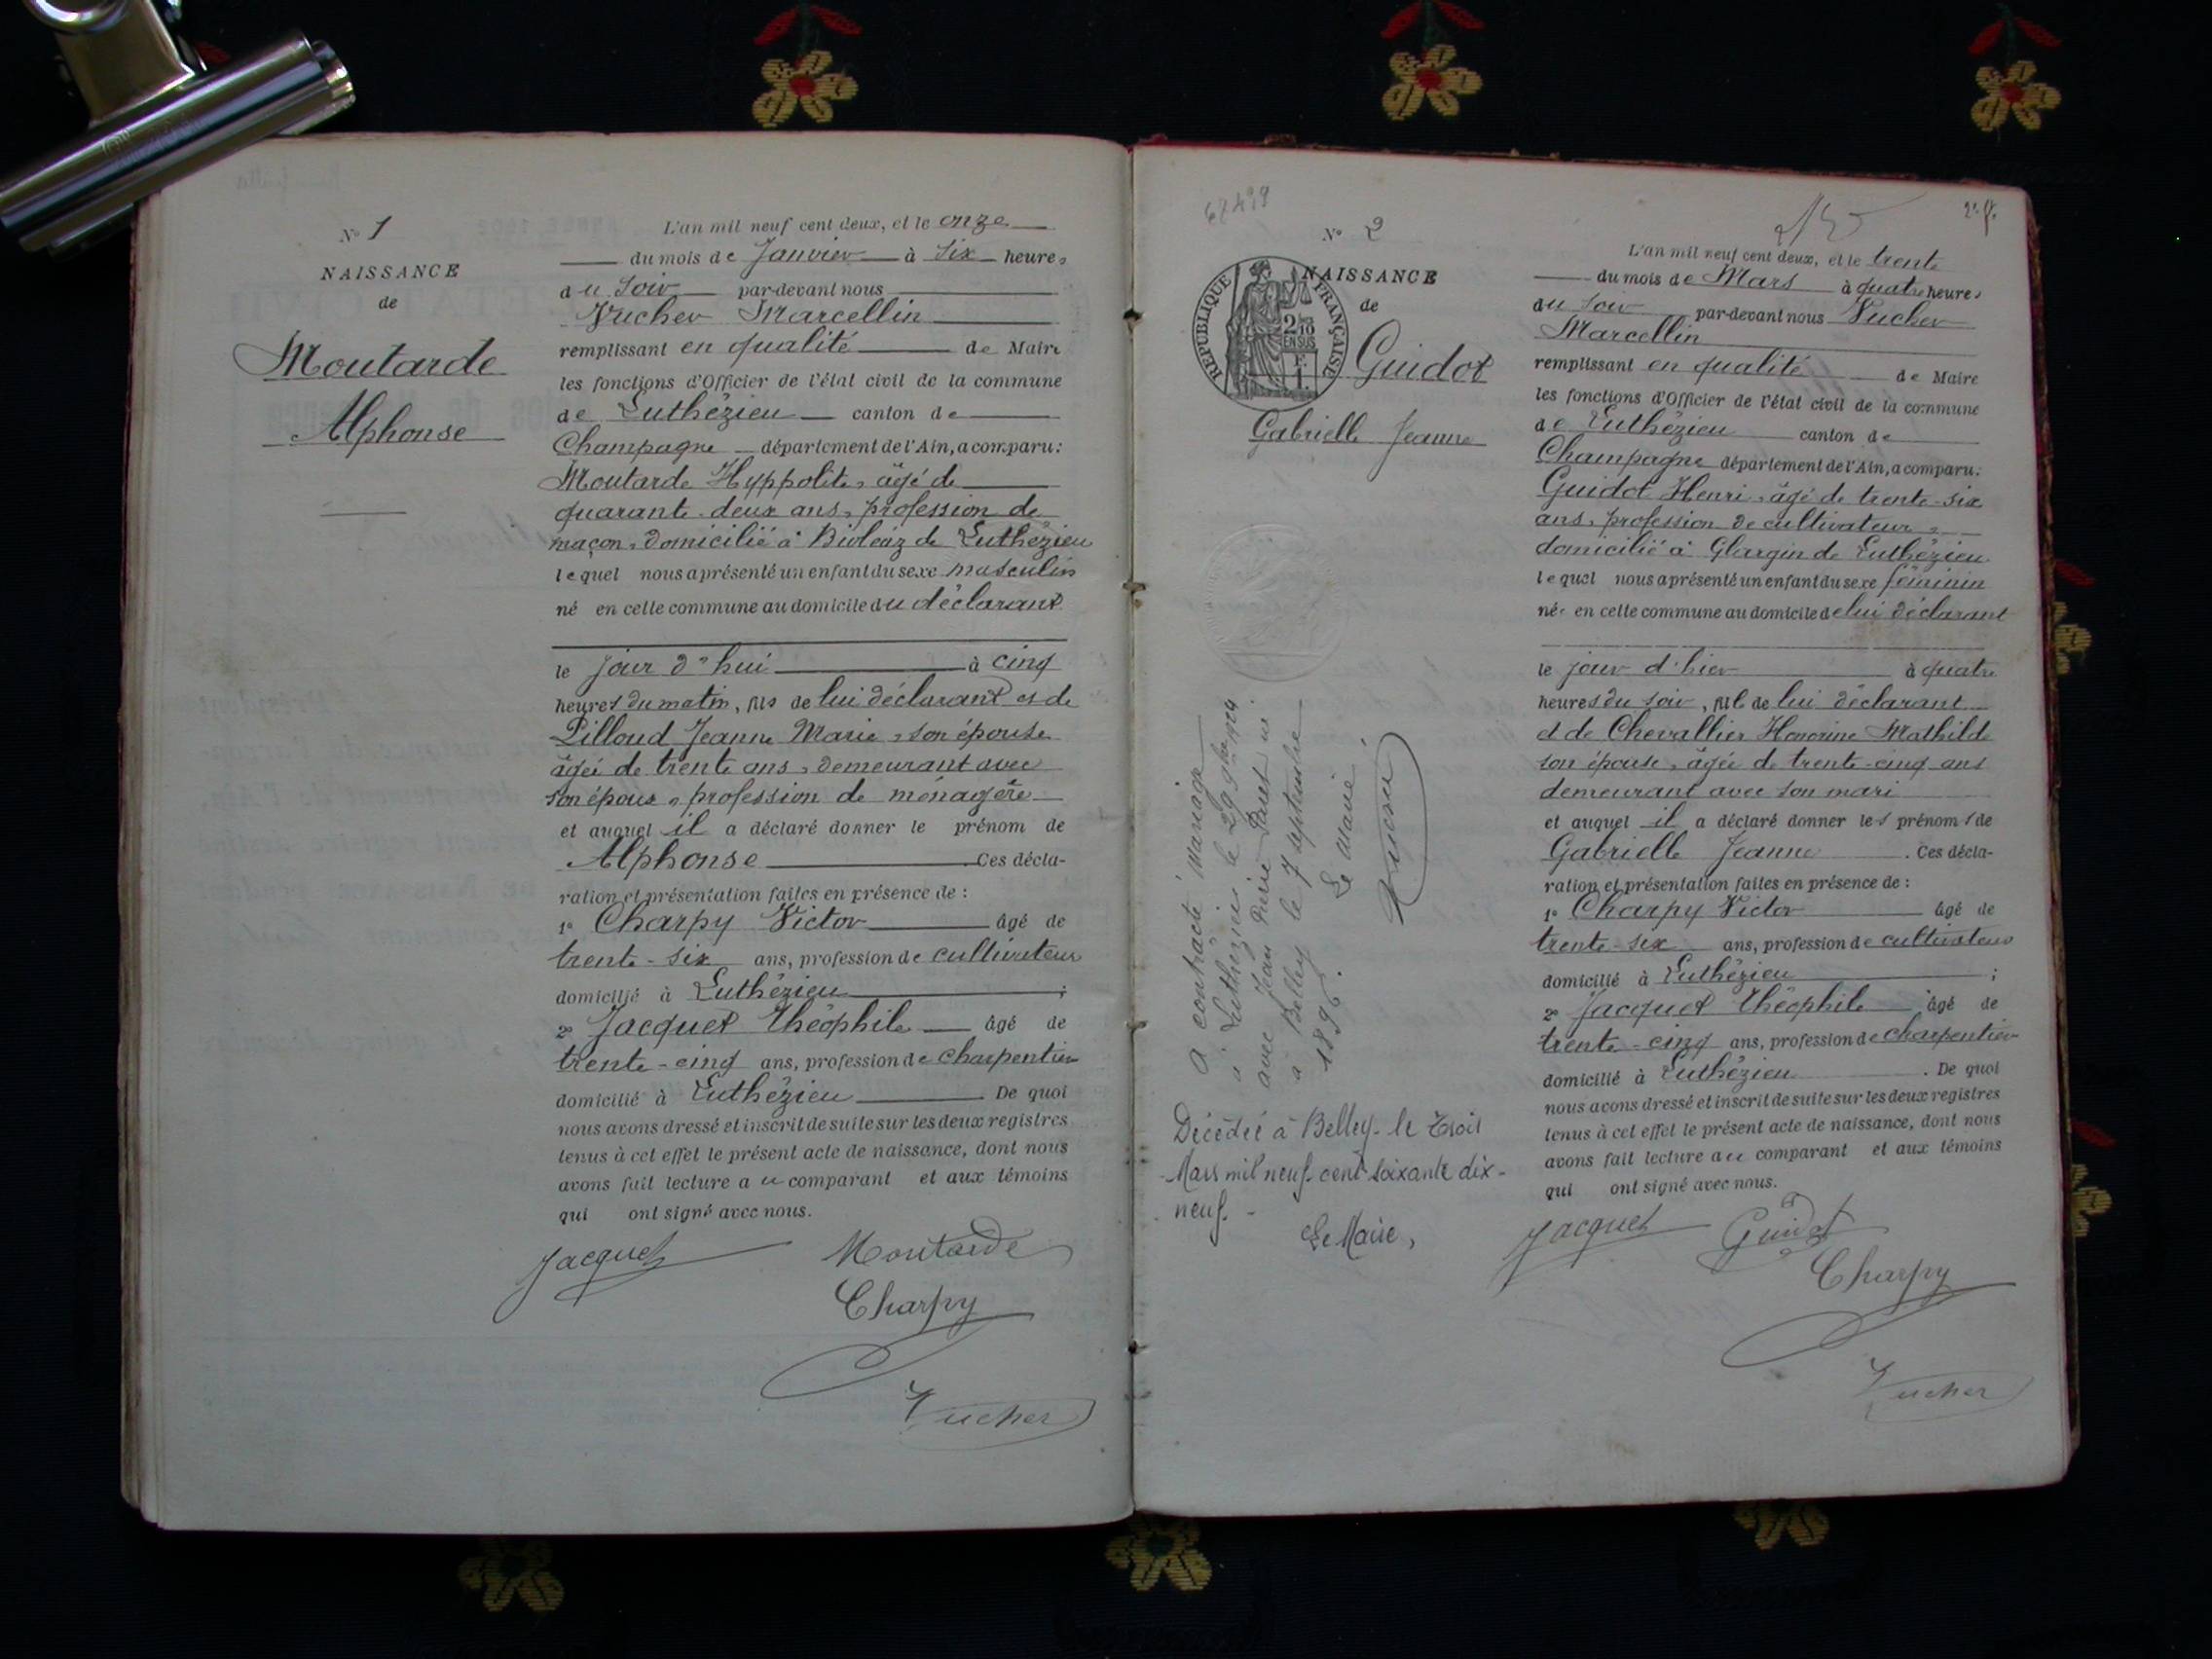 N° 1
NAISSANCE
de
Moutarde
Alphonse
L'an mil neuf cent deux, et le onze
du mois de Janvier à Six heures
du Soir par-devant nous
Vucher Marcellin
remplissant en qualité de Maire
les fonctions d'Officier de l'état civil de la commune
de Luthézieu canton de
Champagne département de l'Ain, a comparu:
Moutarde Hyppolite, âgé de
quarante-deux ans, profession de
maçon, domicilié à Bioléaz de Luthézieu
lequel nous a présenté un enfant du sexe masculin
né en cette commune au domicile du déclarant
le jour d'hui à cinq
heures du matin, fils de lui déclarant et de
Pilloud Jeanne Marie, son épouse
âgée de trente ans, demeurant avec
son époux, profession de ménagère
et auquel il a déclaré donner le prénom de
Alphonse Ces décla-
ration et présentation faites en présence de :
1° Charpy Victor âgé de
trente-six ans, profession de cultivateur
domicilié à Luthézieu ;
2° Jacquet Théophile âgé de
trente-cinq ans, profession de charpentier
domicilié à Luthézieu De quoi
nous avons dressé et inscrit de suite sur les deux registres
tenus à cet effet le présent acte de naissance, dont nous
avons fait lecture au comparant et aux témoins
qui ont signé avec nous.
Jacquet Moutarde
Charpy
Vucher
67499
N° 2
NAISSANCE
de
REPUBLIQUE FRANÇAISE
2/10
EN SUS
F.
1.
Guidot
Gabrielle Jeanne
a contracté mariage
à Luthézieu le 29 9bre 1924
avec Jean Pierre
à Belley le 7 septembre
1896.
Le Maire
Décédée à Belley le trois
Mars mil neuf cent soixante dix-
neuf.
Le Maire,
2e f.
L'an mil neuf cent deux, et le trente
du mois de Mars à quatre heures
du soir par-devant nous Vucher
Marcellin
remplissant en qualité de Maire
les fonctions d'Officier de l'état civil de la commune
de Luthézieu canton de
Champagne département de l'Ain, a comparu:
Guidot Henri, âgé de trente-six
ans, profession de cultivateur,
domicilié à Glargin de Luthézieu
lequel nous a présenté un enfant du sexe féminin
née en cette commune au domicile de lui déclarant
le jour d'hier à quatre
heures du soir, fille de lui déclarant
et de Chevallier Honorine Mathilde
son épouse, âgée de trente-cinq ans
demeurant avec son mari
et auquel il a déclaré donner les prénoms de
Gabrielle Jeanne . Ces décla-
ration et présentation faites en présence de :
1° Charpy Victor âgé de
trente-six ans, profession de cultivateur
domicilié à Luthézieu ;
2° Jacquet Théophile âgé de
trente-cinq ans, profession de charpentier
domicilié à Luthézieu . De quoi
nous avons dressé et inscrit de suite sur les deux registres
tenus à cet effet le présent acte de naissance, dont nous
avons fait lecture au comparant et aux témoins
qui ont signé avec nous.
Jacquet Guidot
Charpy
Vucher